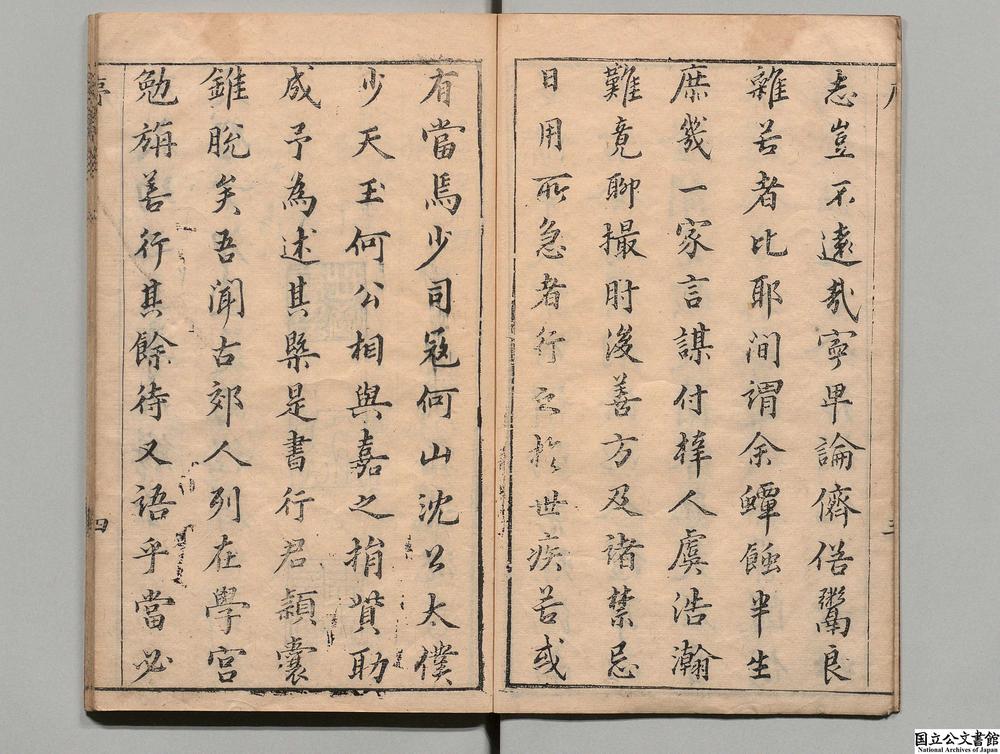 志豈不遠哉寧卑論儕俗鬻良
雜苦者比耶間謂余蟫蝕半生
庶幾一家言謀付梓人虞浩瀚
難竟聊撮肘後善方及諸禁忌
日用所急者行之於世疾苦或
有當焉少司寇何山沈公太僕
少天玉何公相與嘉之捐貲助
成予為述其槩是書行君穎囊
錐脫矣吾聞古郊人列在學宮
勉旃善行其餘待又語乎當必
序
四
三
国立公文書館
National Archives of Japan